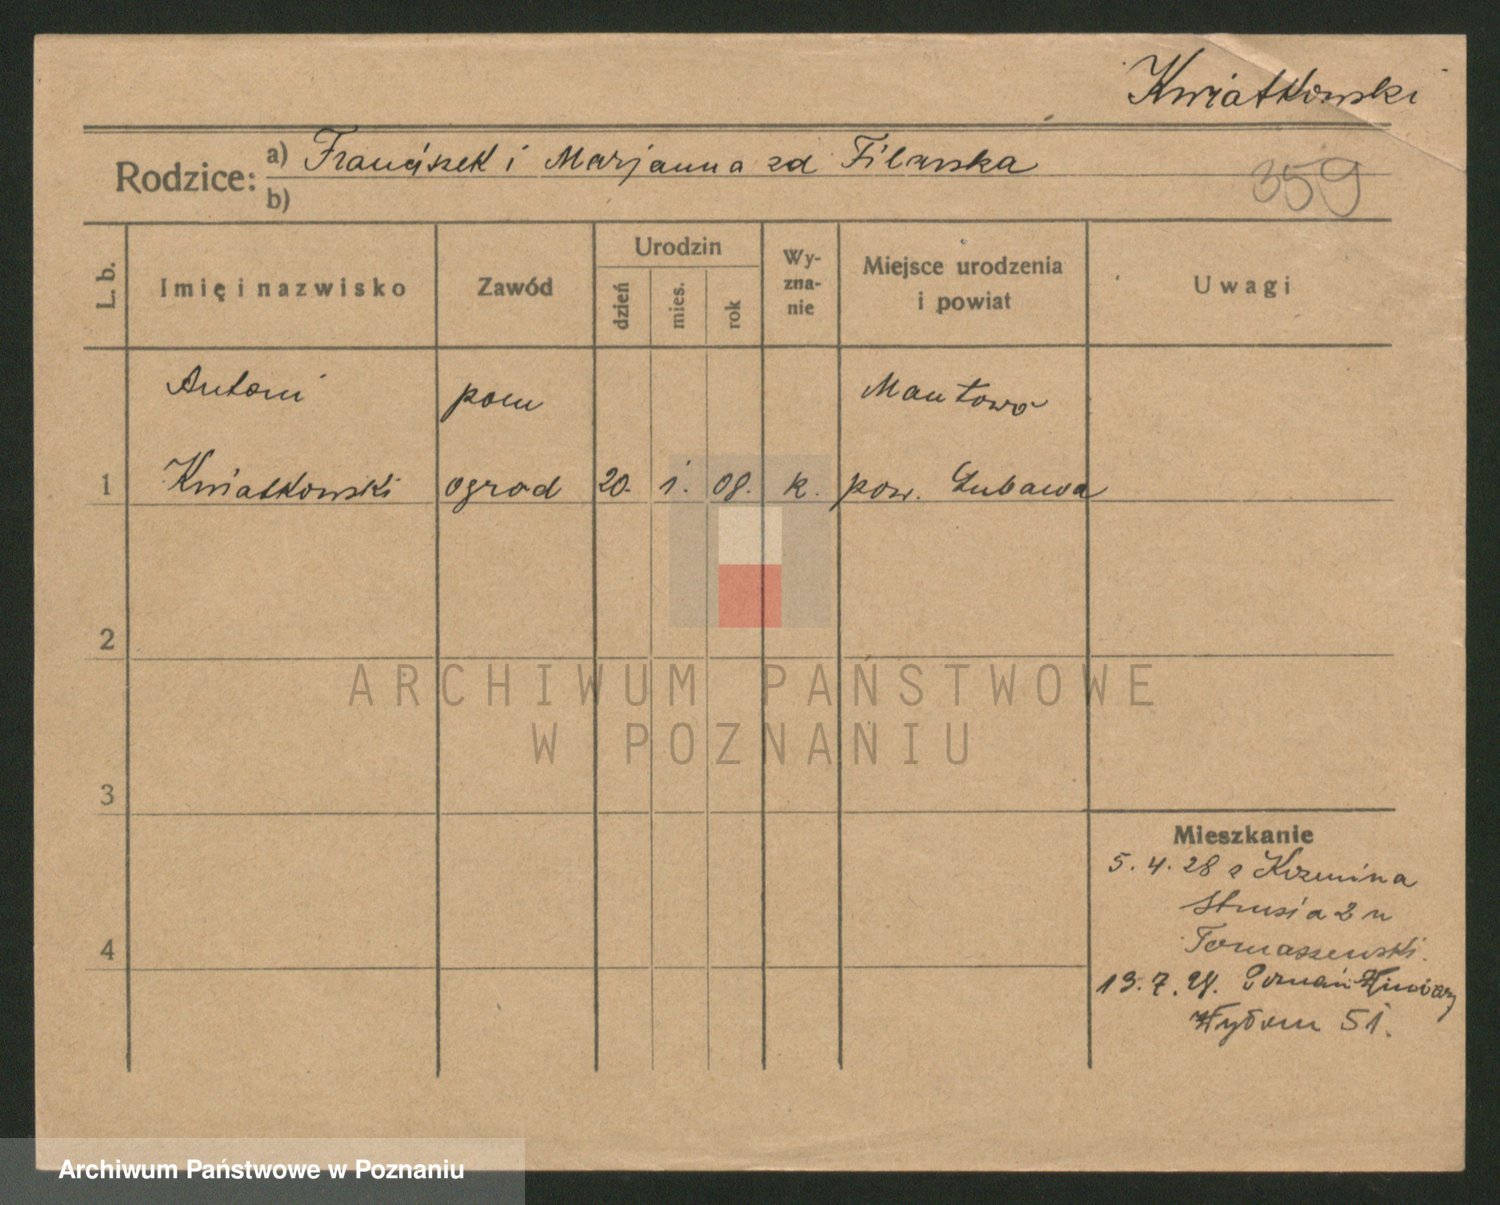 Kwiatkowski
Rodzice: a) Franciszek i Marjanna zd Filarska
b)
359
L. b. Imię i nazwisko Zawód Urodzin dzień mies. rok Wy-zna-nie Miejsce urodzenia i powiat Uwagi
Antoni pom Mantowo
1 Kwiatkowski ogrod 20. 1. 08. k. pow. Lubawa
2
ARCHIWUM PAŃSTWOWE
W POZNANIU
3
Mieszkanie
5.4.28 z Kozmina
Strusia 2 u
Tomaszewski.
4
13.7.28. Poznań
51.
Archiwum Państwowe w Poznaniu